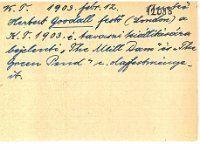 K. T. 1903. febr. 12.
Herbert Goodall festő (London) a
K. T. 1903. é. tavaszi kiállítására
bejelenti "The Mill Dam" és "The
Green Pend" c. olajfestménye-
it.